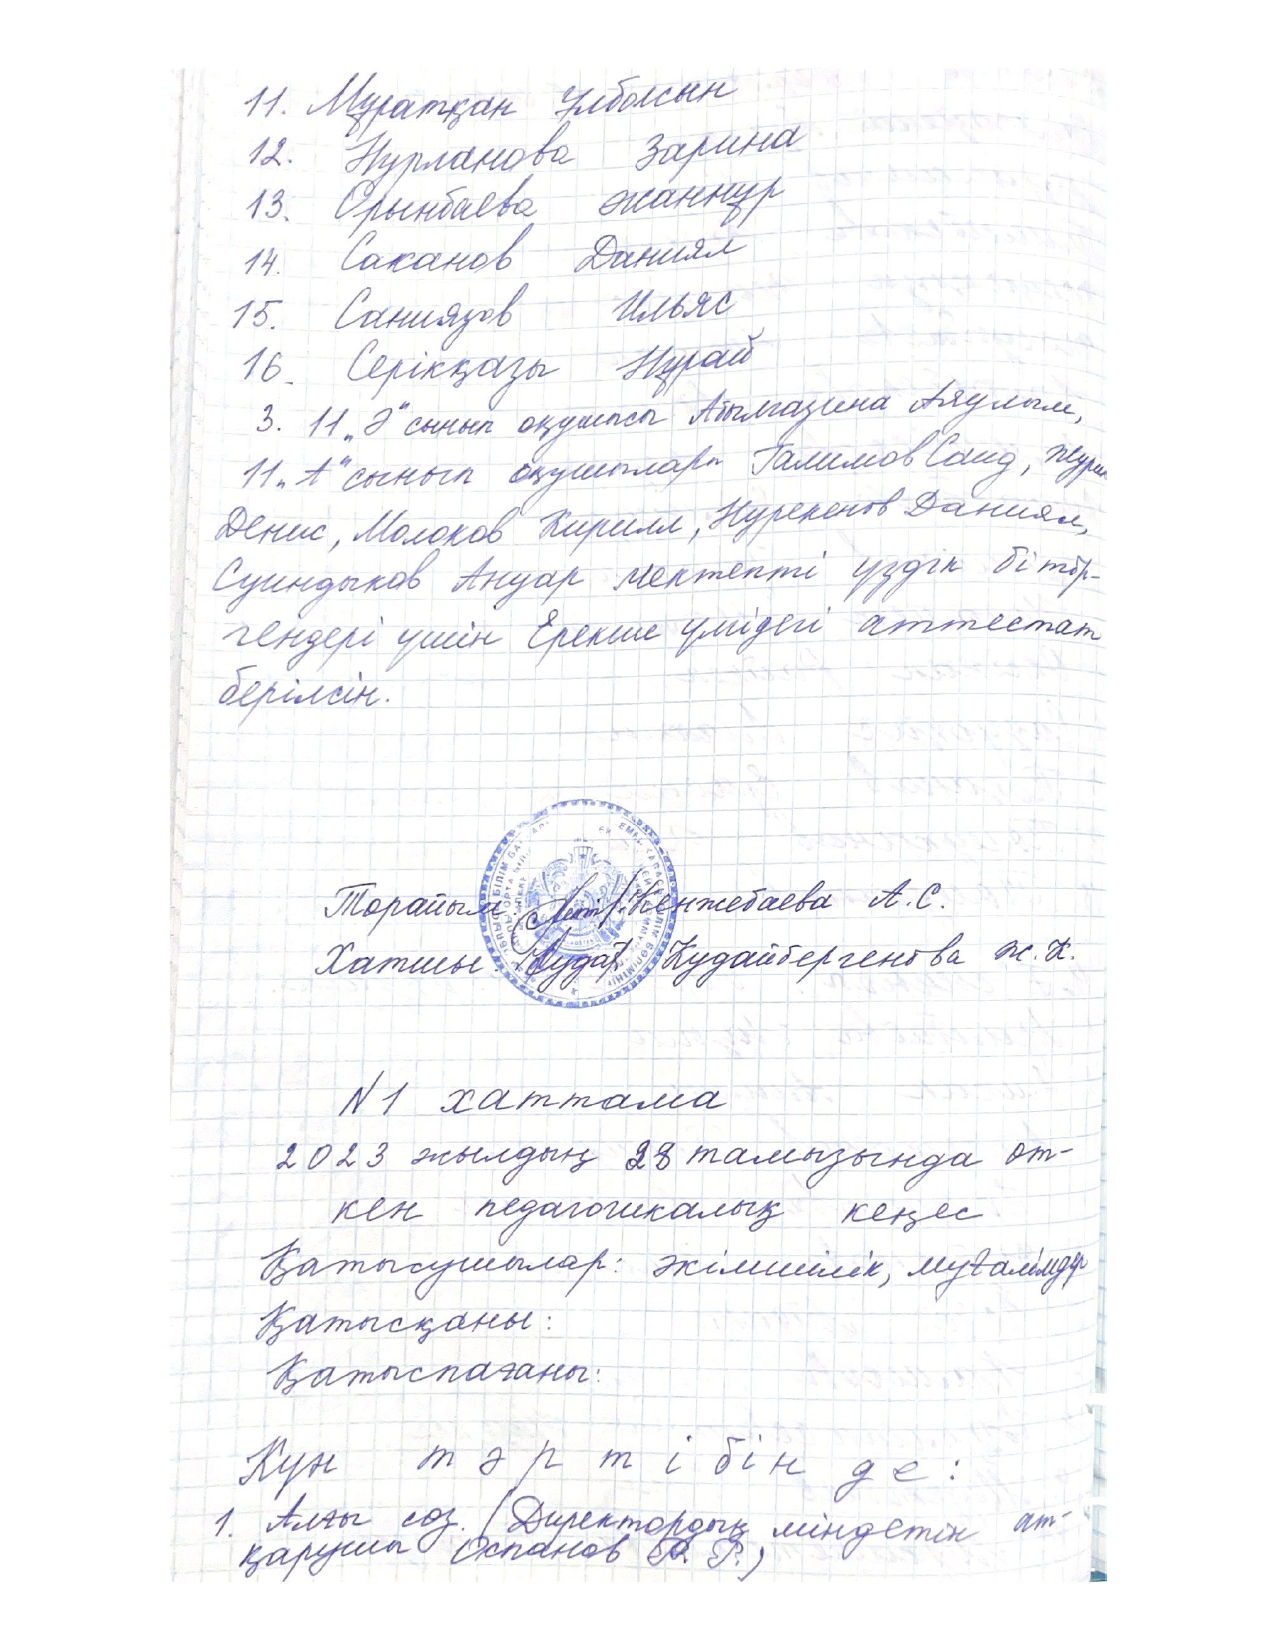 11. Мұратқан Ұлболсын
12. Нурланова Зарина
13. Орынбаева Жаннұр
14. Саканов Даниял
15. Саниязов Ильяс
16. Серікқазы Нұрай
3. 11 „Ә" сынып оқушысы Абылгазина Аяулым,
11 „А" сынып оқушылары Галимов Саид,
Денис, Молоков Кирилл, Нурекенов Даниял,
Суиндыков Ануар мектепті үздік бітір-
гендері үшін Ерекше үлгідегі аттестат
берілсін.
Төрайым Кенжебаева А.С.
Хатшы: Кудайбергенова Ж.К.
N1 хаттама
2023 жылдың 28 тамызында өт-
кен педагогикалық кеңес
Қатысушылар: әкімшілік, мұғалімдер
Қатысқаны:
Қатыспағаны:
Күн тәртібінде:
1. Алғы сөз. (Директордың міндетін ат-
қарушы Оспанов Р.)